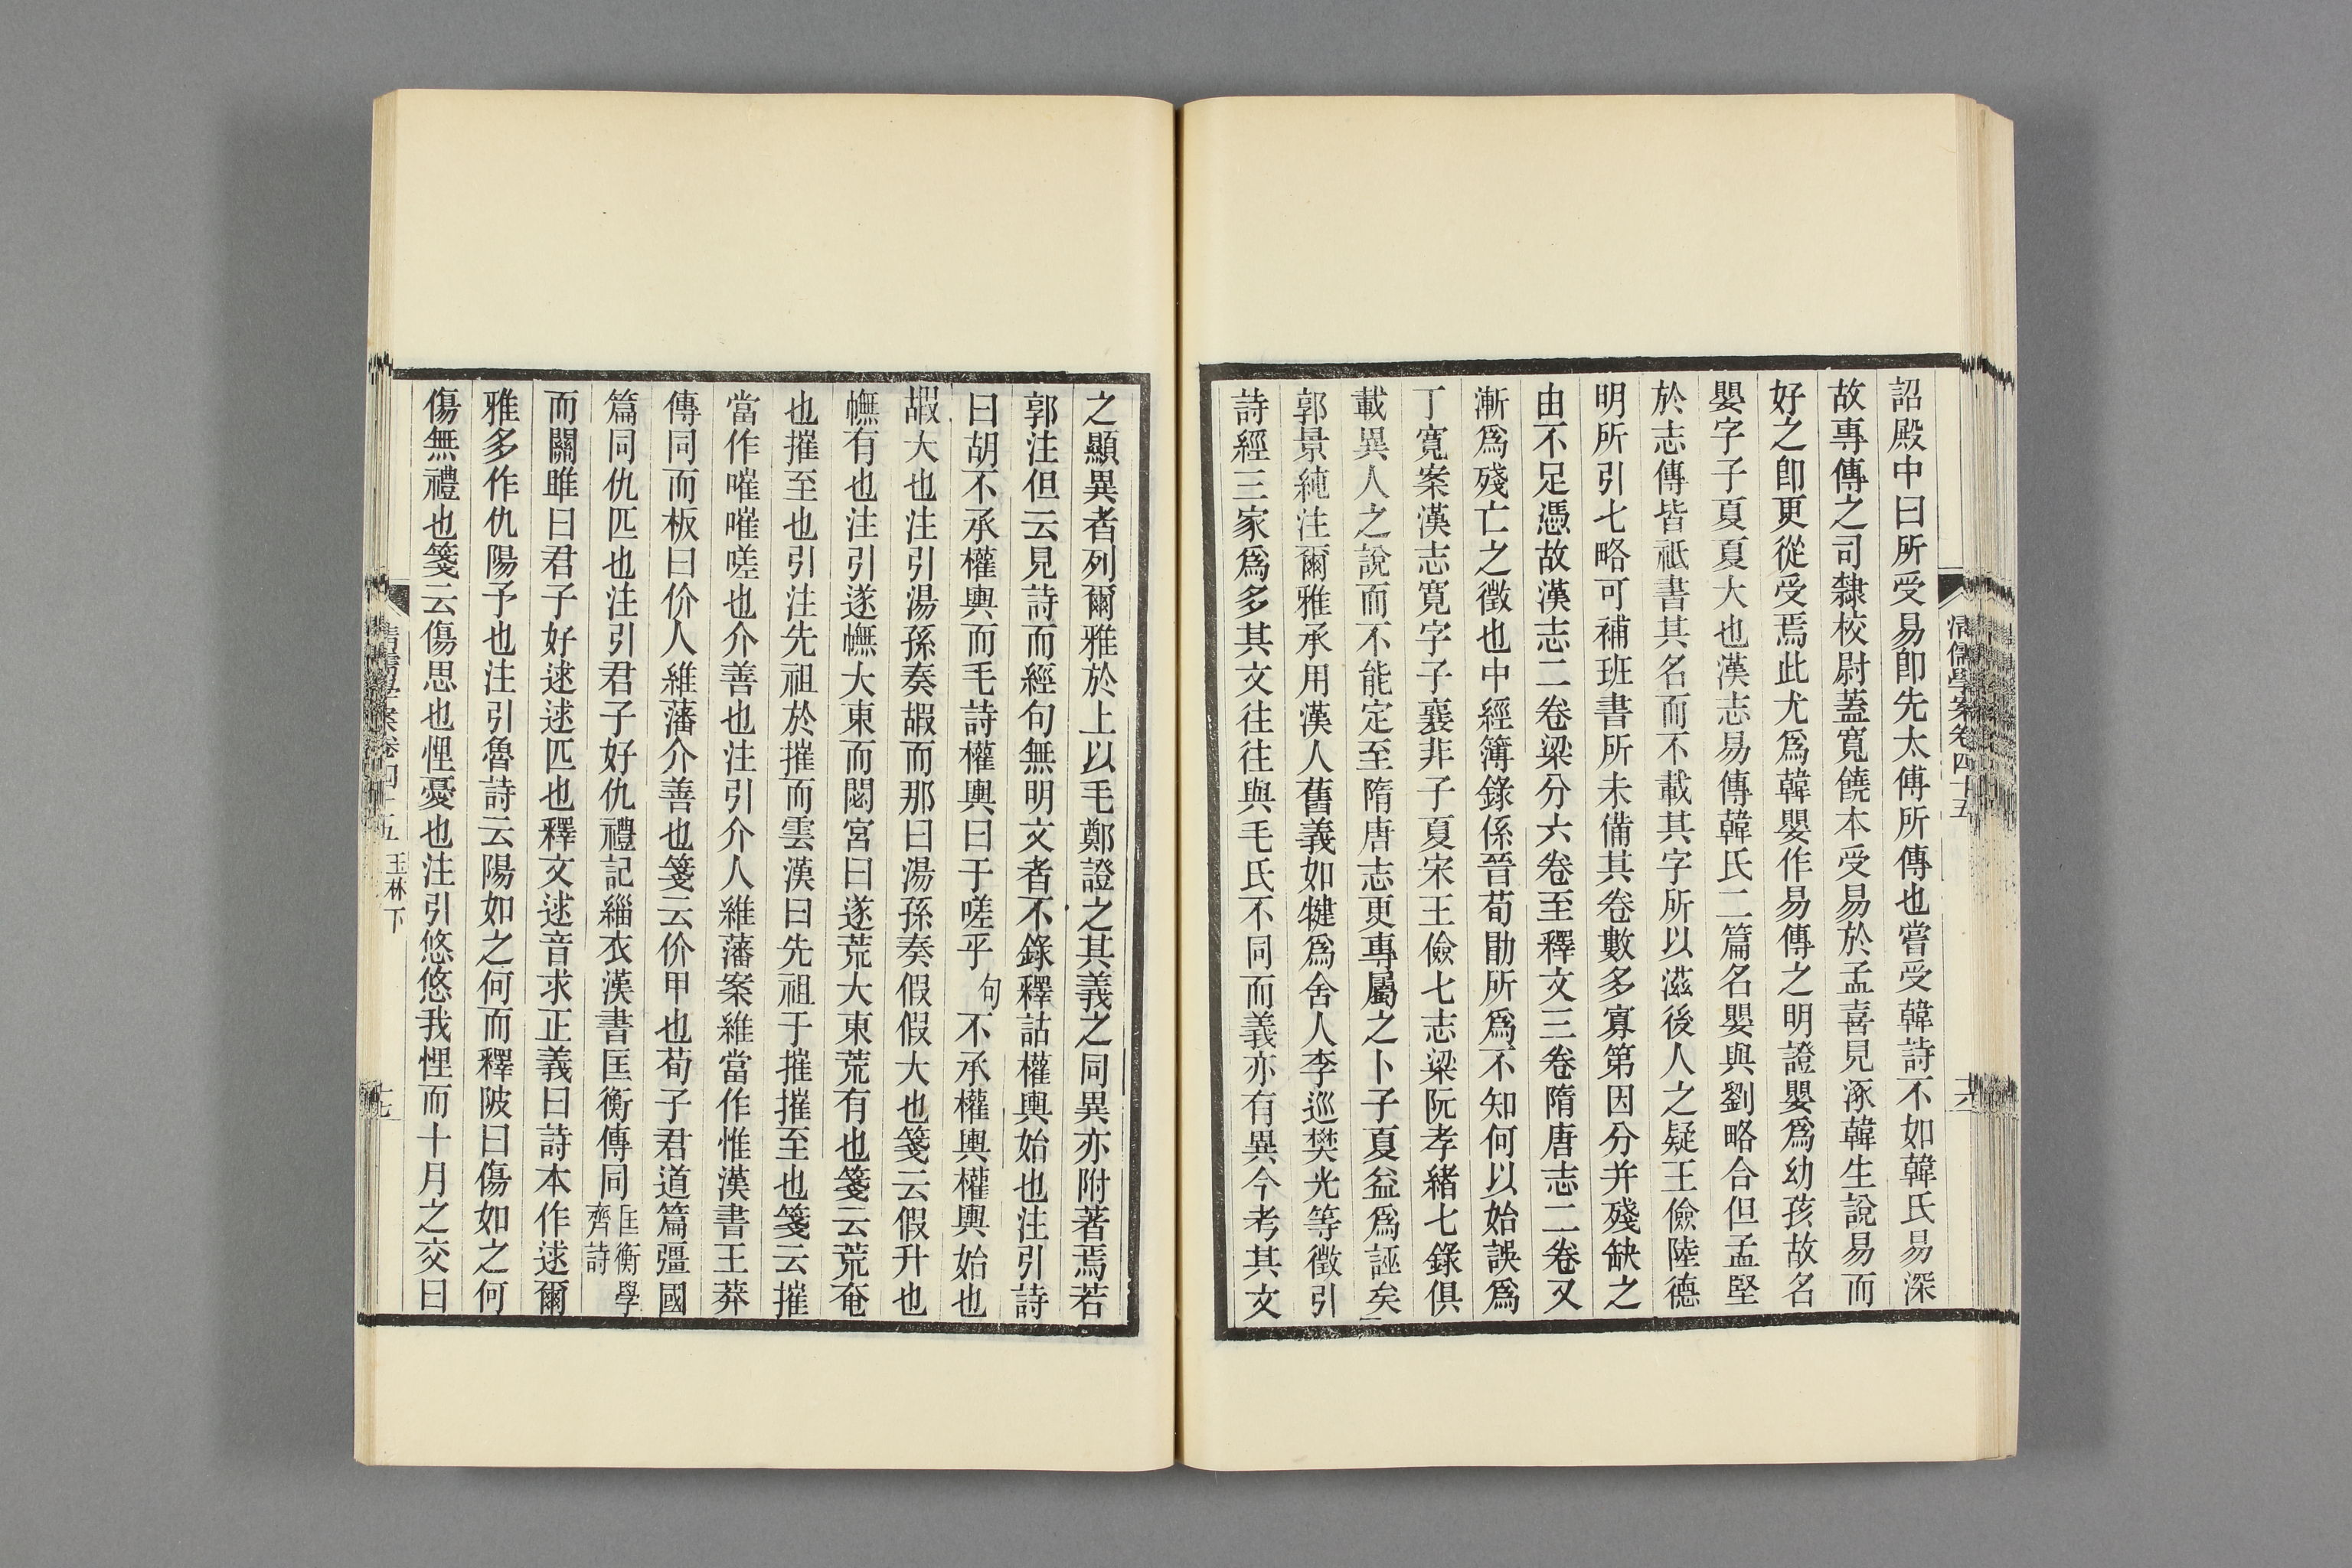 清儒學案卷四十五
十六
詔殿中曰所受易卽先太傅所傳也嘗受韓詩不如韓氏易深
故專傳之司隸校尉蓋寬饒本受易於孟喜見涿韓生說易而
好之卽更從受焉此尤爲韓嬰作易傳之明證嬰爲幼孩故名
嬰字子夏夏大也漢志易傳韓氏二篇名嬰與劉略合但孟堅
於志傳皆祇書其名而不載其字所以滋後人之疑王儉陸德
明所引七略可補班書所未備其卷數多寡第因分并殘缺之
由不足憑故漢志二卷梁分六卷至釋文三卷隋唐志二卷又
漸爲殘亡之徵也中經簿錄係晉荀勖所爲不知何以始誤爲
丁寬案漢志寬字子襄非子夏宋王儉七志梁阮孝緖七錄俱
載異人之說而不能定至隋唐志更專屬之卜子夏益爲誣矣
郭景純注爾雅承用漢人舊義如犍爲舍人李巡樊光等徵引
詩經三家爲多其文往往與毛氏不同而義亦有異今考其文
之顯異者列爾雅於上以毛鄭證之其義之同異亦附著焉若
郭注但云見詩而經句無明文者不錄釋詁權輿始也注引詩
曰胡不承權輿而毛詩權輿曰于嗟乎句不承權輿權輿始也
嘏大也注引湯孫奏嘏而那曰湯孫奏假假大也箋云假升也
幠有也注引遂幠大東而閟宮曰遂荒大東荒有也箋云荒奄
也摧至也引注先祖於摧而雲漢曰先祖于摧摧至也箋云摧
當作嗺嗺嗟也介善也注引介人維藩案維當作惟漢書王莽
傳同而板曰价人維藩介善也箋云价甲也荀子君道篇彊國
篇同仇匹也注引君子好仇禮記緇衣漢書匡衡傳同匡衡學齊詩
而關雎曰君子好逑逑匹也釋文逑音求正義曰詩本作逑爾
雅多作仇陽予也注引魯詩云陽如之何而釋陂曰傷如之何
傷無禮也箋云傷思也悝憂也注引悠悠我悝而十月之交曰
清儒學案卷四十五 玉林下
十七